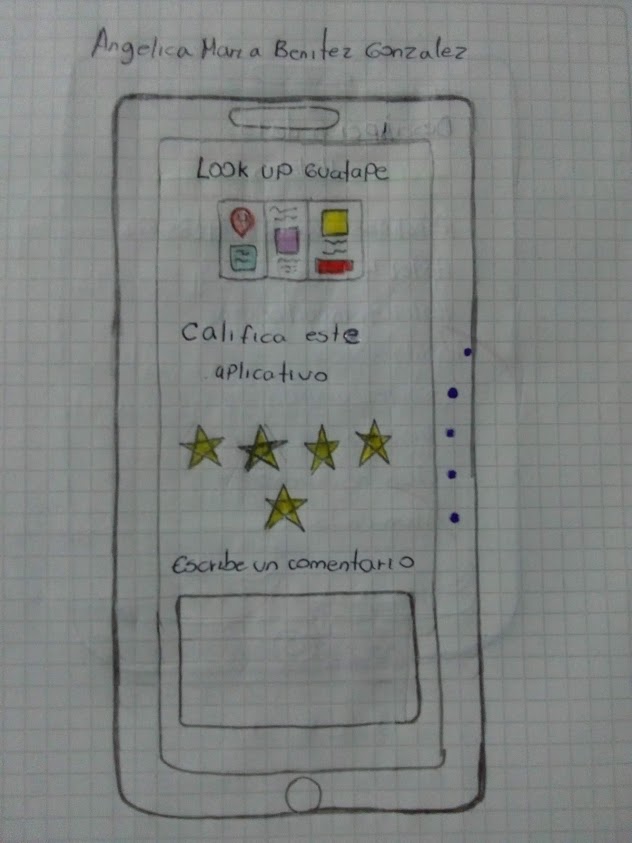 Angelica Maria Benitez Gonzalez
Look up Guatape
Califica este
aplicativo
Escribe un comentario